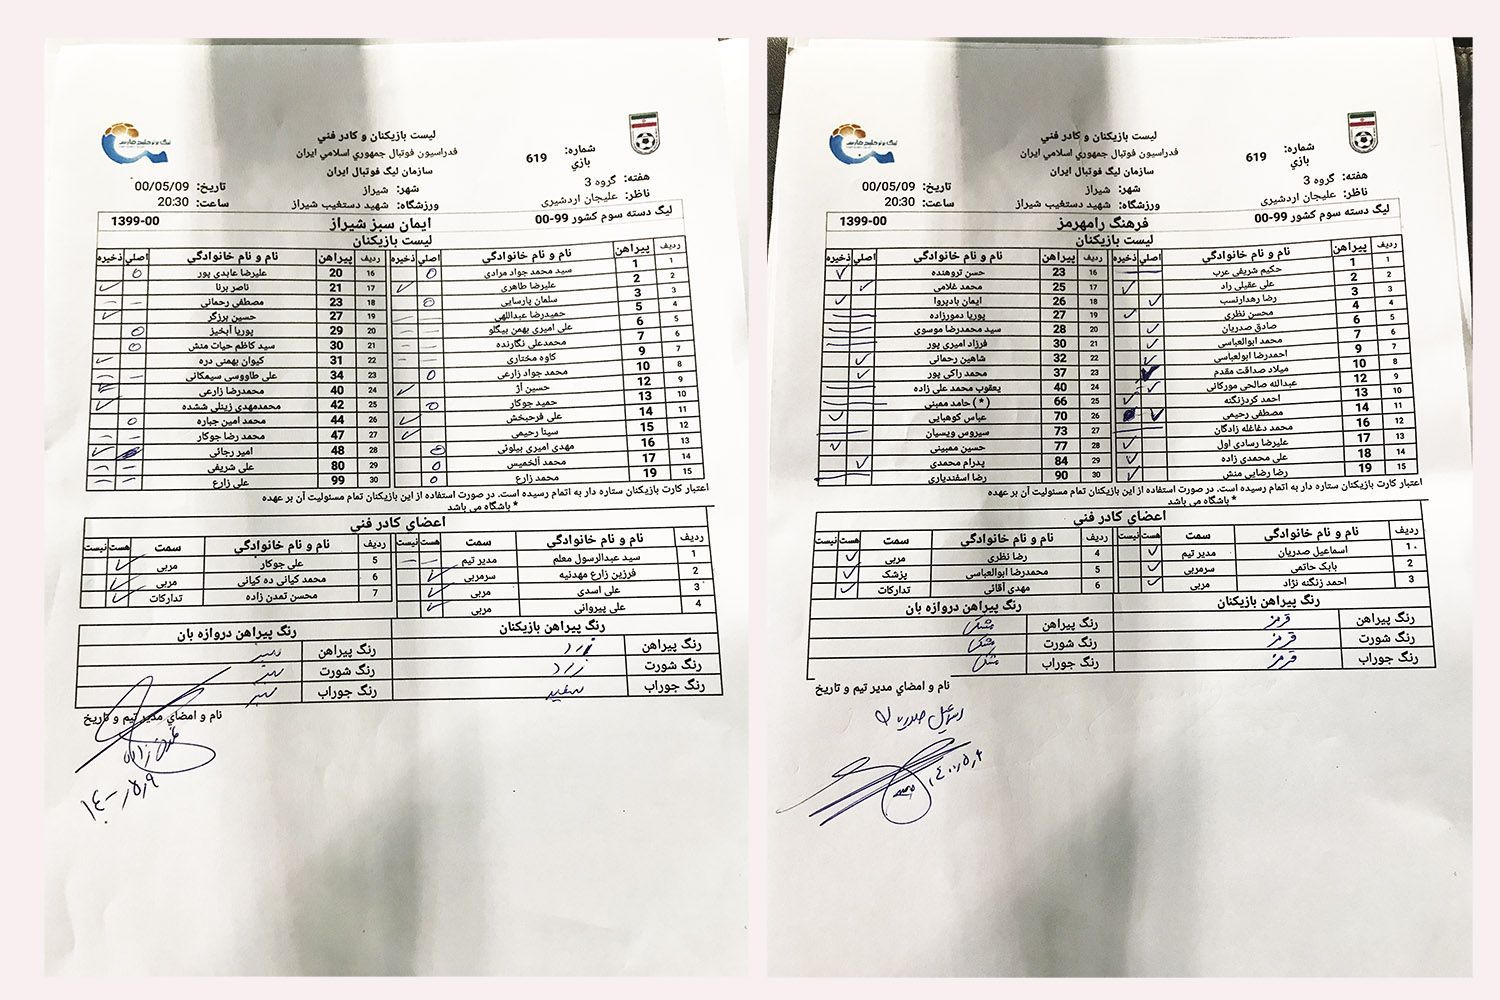 لیست بازیکنان و کادر فني
فدراسیون فوتبال جمهوري اسلامي ایران
سازمان لیگ فوتبال ایران
شماره بازي: 619
هفته: گروه 3
ناظر: علیجان اردشیری
شهر: شیراز
ورزشگاه: شهید دستغیب شیراز
تاریخ: 00/05/09
ساعت: 20:30
لیگ دسته سوم کشور 99-00
ایمان سبز شیراز
1399-00
لیست بازیکنان
ردیف پیراهن نام و نام خانوادگي اصلي ذخیره ردیف پیراهن نام و نام خانوادگي اصلي ذخیره
1 1 سید محمد جواد مرادی 16 20 علیرضا عابدی پور
2 2 علیرضا طاهری 17 21 ناصر برنا
3 3 سلمان پارسایی 18 23 مصطفی رحمانی
4 5 حمیدرضا عبداللهی 19 27 حسین برزگر
5 6 علی امیری بهمن بیگلو 20 29 پوریا آبخیز
6 7 محمدعلی نگارنده 21 30 سید کاظم حیات منش
7 9 کاوه مختاری 22 31 کیوان بهمنی دره
8 10 محمد جواد زارعی 23 34 علی طاووسی سیمکانی
9 12 حسین آژ 24 40 محمدرضا زارعی
10 13 حمید جوکار 25 42 محمدمهدی زینلی ششده
11 14 علی فرحبخش 26 44 محمد امین جباره
12 15 سینا رحیمی 27 47 محمد رضا جوکار
13 16 مهدی امیری بیلونی 28 48 امیر رجائی
14 17 محمد آلخمیس 29 80 علی شریفی
15 19 محمد زارع 30 99 علی زارع
اعتبار کارت بازیکنان ستاره دار به اتمام رسیده است. در صورت استفاده از این بازیکنان تمام مسئولیت آن بر عهده
* باشگاه مي باشد
اعضاي کادر فني
ردیف نام و نام خانوادگي سمت هست نیست ردیف نام و نام خانوادگي سمت هست نیست
1 سید عبدالرسول معلم مدیر تیم 5 علی جوکار مربی
2 فرزین زارع مهدنیه سرمربی 6 محمد کیانی ده کیانی مربی
3 علی اسدی مربی 7 محسن تمدن زاده تدارکات
4 علی پیروانی مربی
رنگ پیراهن بازیکنان رنگ پیراهن دروازه بان
رنگ پیراهن زرد رنگ پیراهن سبز
رنگ شورت زرد رنگ شورت سبز
رنگ جوراب سفید رنگ جوراب سبز
نام و امضاي مدیر تیم و تاریخ
لیست بازیکنان و کادر فني
فدراسیون فوتبال جمهوري اسلامي ایران
سازمان لیگ فوتبال ایران
شماره بازي: 619
هفته: گروه 3
ناظر: علیجان اردشیری
شهر: شیراز
ورزشگاه: شهید دستغیب شیراز
تاریخ: 00/05/09
ساعت: 20:30
لیگ دسته سوم کشور 99-00
فرهنگ رامهرمز
1399-00
لیست بازیکنان
ردیف پیراهن نام و نام خانوادگي اصلي ذخیره ردیف پیراهن نام و نام خانوادگي اصلي ذخیره
1 1 حکیم شریفی عرب 16 23 حسن تروهنده
2 2 علی عقیلی راد 17 25 محمد غلامی
3 3 رضا رهدارنسب 18 26 ایمان بادپروا
4 4 محسن نظری 19 27 پوریا دمورزاده
5 6 صادق صدریان 20 28 سید محمدرضا موسوی
6 7 محمد ابوالعباسی 21 30 فرزاد امیری پور
7 9 احمدرضا ابولعباسی 22 32 شاهین رحمانی
8 10 میلاد صداقت مقدم 23 37 محمد راکی پور
9 12 عبدالله صالحی مورکانی 24 40 یعقوب محمد علی زاده
10 13 احمد کردزنگنه 25 66 (*) حامد ممبنی
11 14 مصطفی رحیمی 26 70 عباس کوهپایی
12 16 محمد دغاغله زادگان 27 73 سیروس ویسیان
13 17 علیرضا رسادی اول 28 77 حسین ممبینی
14 18 علی محمدی زاده 29 84 پدرام محمدی
15 19 رضا رضایی منش 30 90 رضا اسفندیاری
اعتبار کارت بازیکنان ستاره دار به اتمام رسیده است. در صورت استفاده از این بازیکنان تمام مسئولیت آن بر عهده
* باشگاه مي باشد
اعضاي کادر فني
ردیف نام و نام خانوادگي سمت هست نیست ردیف نام و نام خانوادگي سمت هست نیست
1 اسماعیل صدریان مدیر تیم 4 رضا نظری مربی
2 بابک حاتمی سرمربی 5 محمدرضا ابوالعباسی پزشک
3 احمد زنگنه نژاد مربی 6 مهدی آقائی تدارکات
رنگ پیراهن بازیکنان رنگ پیراهن دروازه بان
رنگ پیراهن قرمز رنگ پیراهن مشکی
رنگ شورت قرمز رنگ شورت مشکی
رنگ جوراب قرمز رنگ جوراب مشکی
نام و امضاي مدیر تیم و تاریخ
اسماعیل صدریان